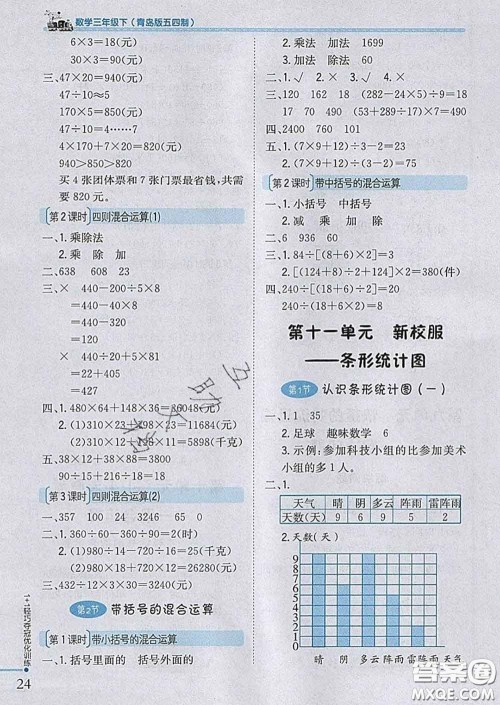 数学三年级下（青岛版五四制）
6×3=18(元)
三、47×20=940(元)
47÷10≈5
170×5=850(元)
47÷10=4……7
4×170+7×20=820(元)
940>850>820
买 4 张团体票和 7 张门票最省钱,共需
要 820 元。
第 2 课时 四则混合运算(1)
一、1. 乘除法
2. 乘 除 加
二、638 608 23
三、× 440-200÷5×8
=440-40×8
=440-320
=120
× 440-20+20÷5
=420+4
=424
× 90÷18+540÷9
=5+60
=65
√ 440-20+27×81
=440-20+2187
=420+2187
=2607
四、1. 480×64+148×36=36048(元)
2. (1)310×23+198×23=11684(元)
(2)310×23-198×9=5348(元)
五、38×44-15×28=1252(千克)
90÷15+216÷18=18(千克)
第 3 课时 四则混合运算(2)
一、357 100 24 3246 65 0
二、1. 360÷60-360÷72=1(元)
2. (1)980÷14-720÷16=25(千克)
(2)980÷14+720÷16=115(千克)
三、432÷12-30=6(千克)
第2节 带括号的混合运算
第 1 课时 带小括号的混合运算
一、1. 括号里面的 括号外面的
2. 乘法 加法 1699
3. 加法 除法 60
二、1. √ 2. × 3. √ 4. ×
三、120 162 18 (282-24×5)÷9=18
17 70 490 (53+289÷17)×7=490
四、2400 760 101
五、1. (7×9+129)÷8=24(元)
2. (7×9+129)÷24=8(元)
第 2 课时 带中括号的混合运算
一、1. 小括号 中括号
2. 减 乘 加 除
二、6 936 60
三、1. 84÷[(8+6)×2]=3(元)
2. [(124+8)÷2+124]×2=380(件)
四、240÷(18+6)÷2=5
240÷[(18+6)×2]=5
第十一单元 新校服
——条形统计图
第1节 认识条形统计图（一）
一、1. 1 35
2. 足球 趣味数学 6
3. 示例: 参加科技小组的比参加美术
小组的多 1 人。
二、1.
天气 晴 阴 多云 阵雨 雷阵雨
天数(天) 9 6 9 5 2
2. 天数(天)
9
8
7
6
5
4
3
2
1
0
晴 阴 多云 阵雨 雷阵雨 天气
1+1轻巧夺冠优化训练
24
答案圈
MXQE.COM